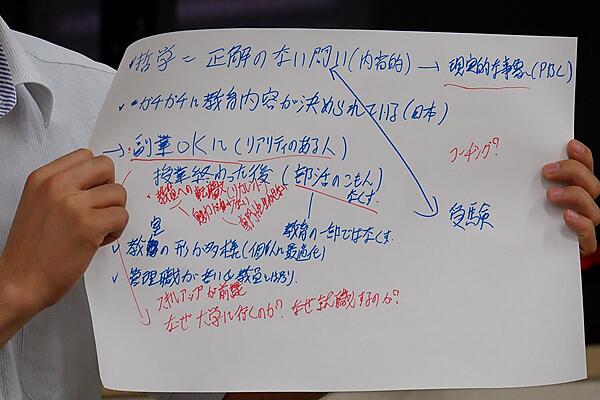 哲学＝正解のない問い(内省的) → 現実的な事象へ(PBL)
✓ガチガチに教育内容が決められている(日本)
→ 副業OKに(リアリティのある人)
コーチング?
授業終わった後(部活のこもんなくす
教員への転職
受験
教育の一部ではなくす
✓教室の形が多様(個人に最適化)
✓管理職が若い
スキルアップが前提
なぜ大学に行くのか? なぜ就職するのか?